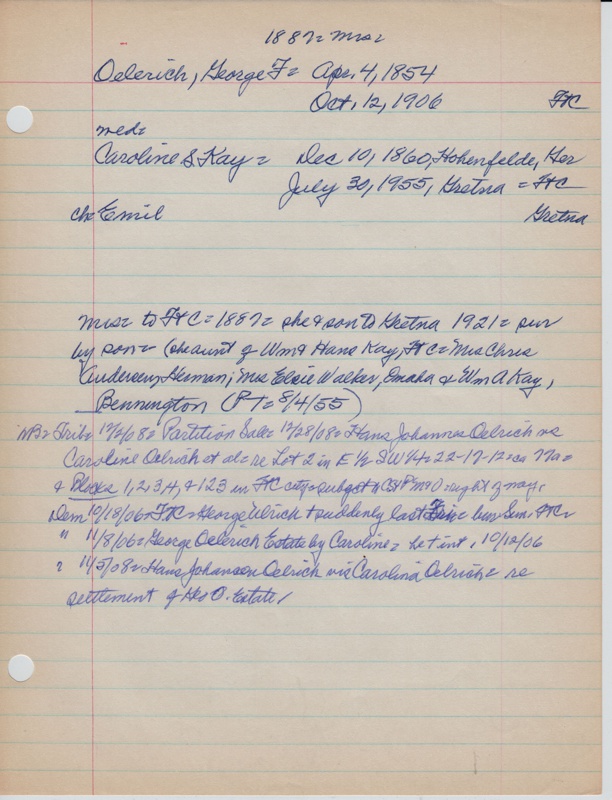 1887= Mrs=
Oelerich, George F= Apr. 4, 1854
Oct. 12, 1906 FtC
med=
Caroline S. Kay = Dec 10, 1860, Hohenfelde, Ger
July 30, 1955, Gretna = FtC
ch Emil Gretna
to FtC = 1887= she & son to Gretna 1921 = sur
by son = (she aunt of Wm & Hans Kay, FtC = Mrs Chris
Andersen, Herman; Mrs Elsie Walker, Omaha & Wm A Kay,
Bennington (PT = 8/4/55)
Trib= 12/2/08= Partition Sale= 12/28/08= Hans Johannes Oelrich vs
Caroline Oelrich et al= re Lot 2 in E ½ SW ¼= 22-17-12= ca 77a=
& Blocks 1,2,3,4, & 123 in FtC city= right of way.
Dem 10/18/06= FtC= George Ulrich + suddenly last Fri= bur Sun. FtC=
" 11/8/06= George Oelerich Estate by Caroline= int. 10/12/06
" 11/5/08= Hans Johansen Oelrich vs Carolina Oelrich= re
settlement of Geo O. Estate/